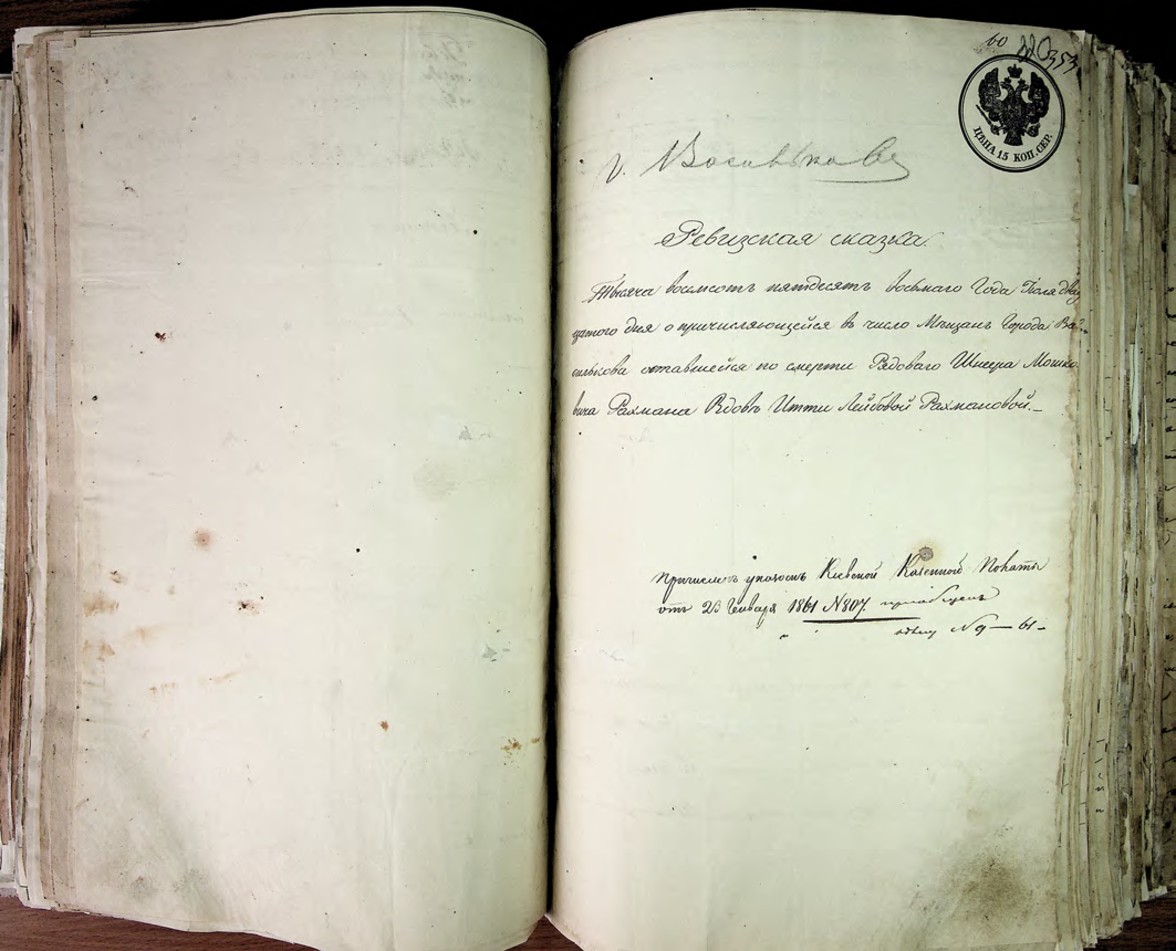 60 353
ЦѢНА 15 КОП. СЕР.
г. Василькова
Ревизская сказка.
Тысяча восемсотъ пятдесятъ восьмаго Года Июля двад
цатого дня о причисляющейся в число Мѣщанъ Города Ва
силькова оставшейся по смерти Рядоваго Шнера Мошко
вича Рахмана Вдовѣ Итти Лейбовой Рахмановой.
Причислена указомъ Киевской Казенной Палаты
отъ 23 Января 1861 N 807.
N 9 — 61 -